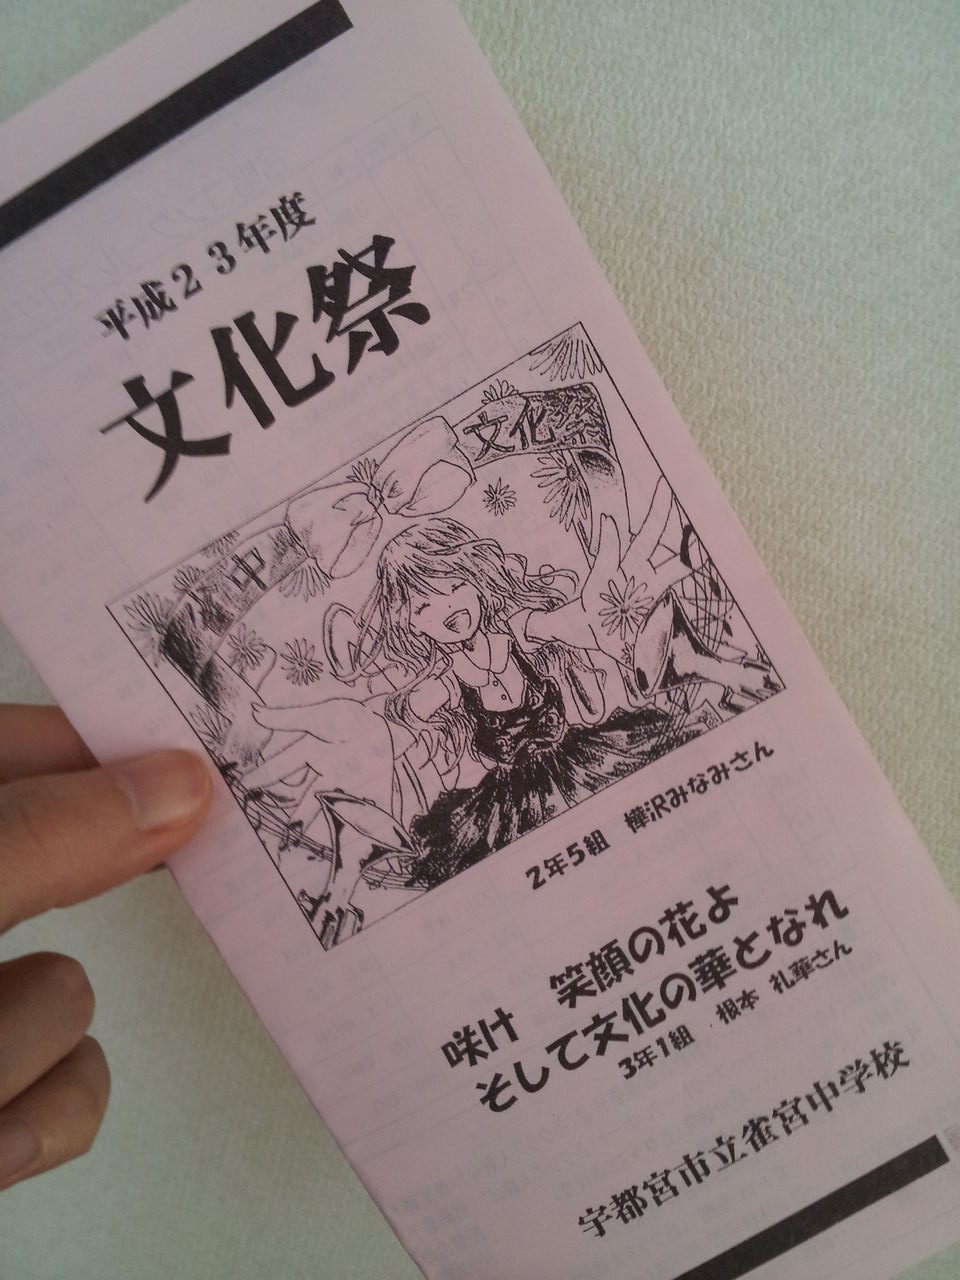 平成23年度
文化祭
文化祭
中
2年5組 樺沢みなみさん
咲け 笑顔の花よ
そして文化の華となれ
3年1組 根本 礼華さん
宇都宮市立雀宮中学校